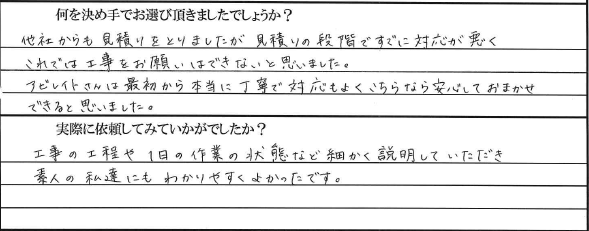 何を決め手でお選び頂きましたでしょうか?
他社からも見積りをとりましたが見積りの段階ですでに対応が悪く
これでは工事をお願いはできないと思いました。
アビレイトさんは最初から本当に丁寧で対応もよくこちらなら安心しておまかせ
できると思いました。
実際に依頼してみていかがでしたか?
工事の工程や1日の作業の状態など細かく説明していただき
素人の私達にもわかりやすくよかったです。